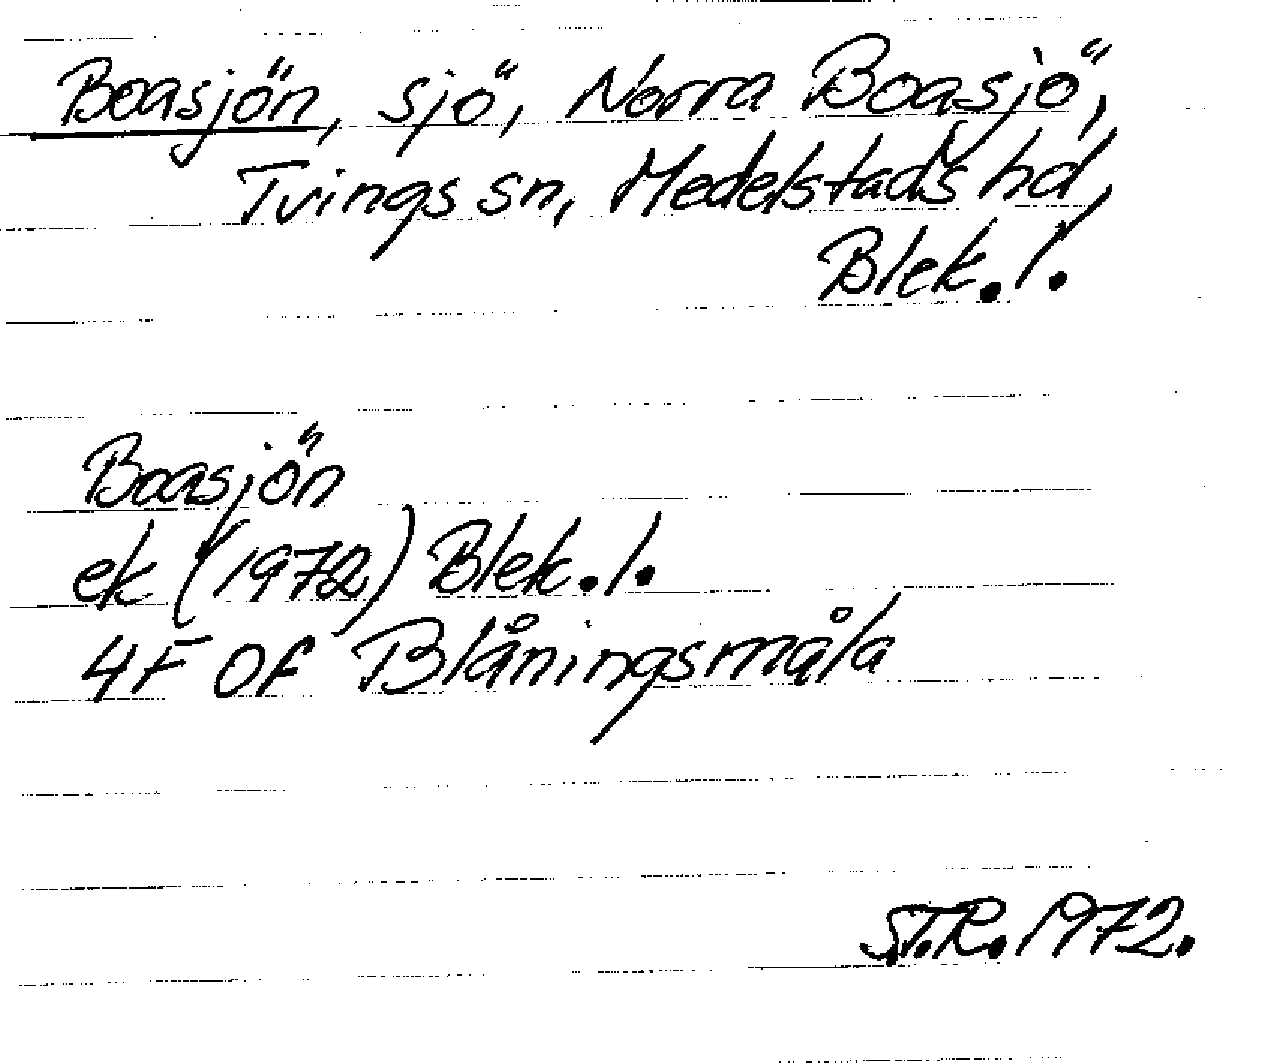 Boasjön, sjö, Norra Boasjö,
Tvings sn, Medelstads hd,
Blek. l.
Boasjön
ek (1972) Blek. l.
4F 0f Blåningsmåla
S.T.R. 1972.